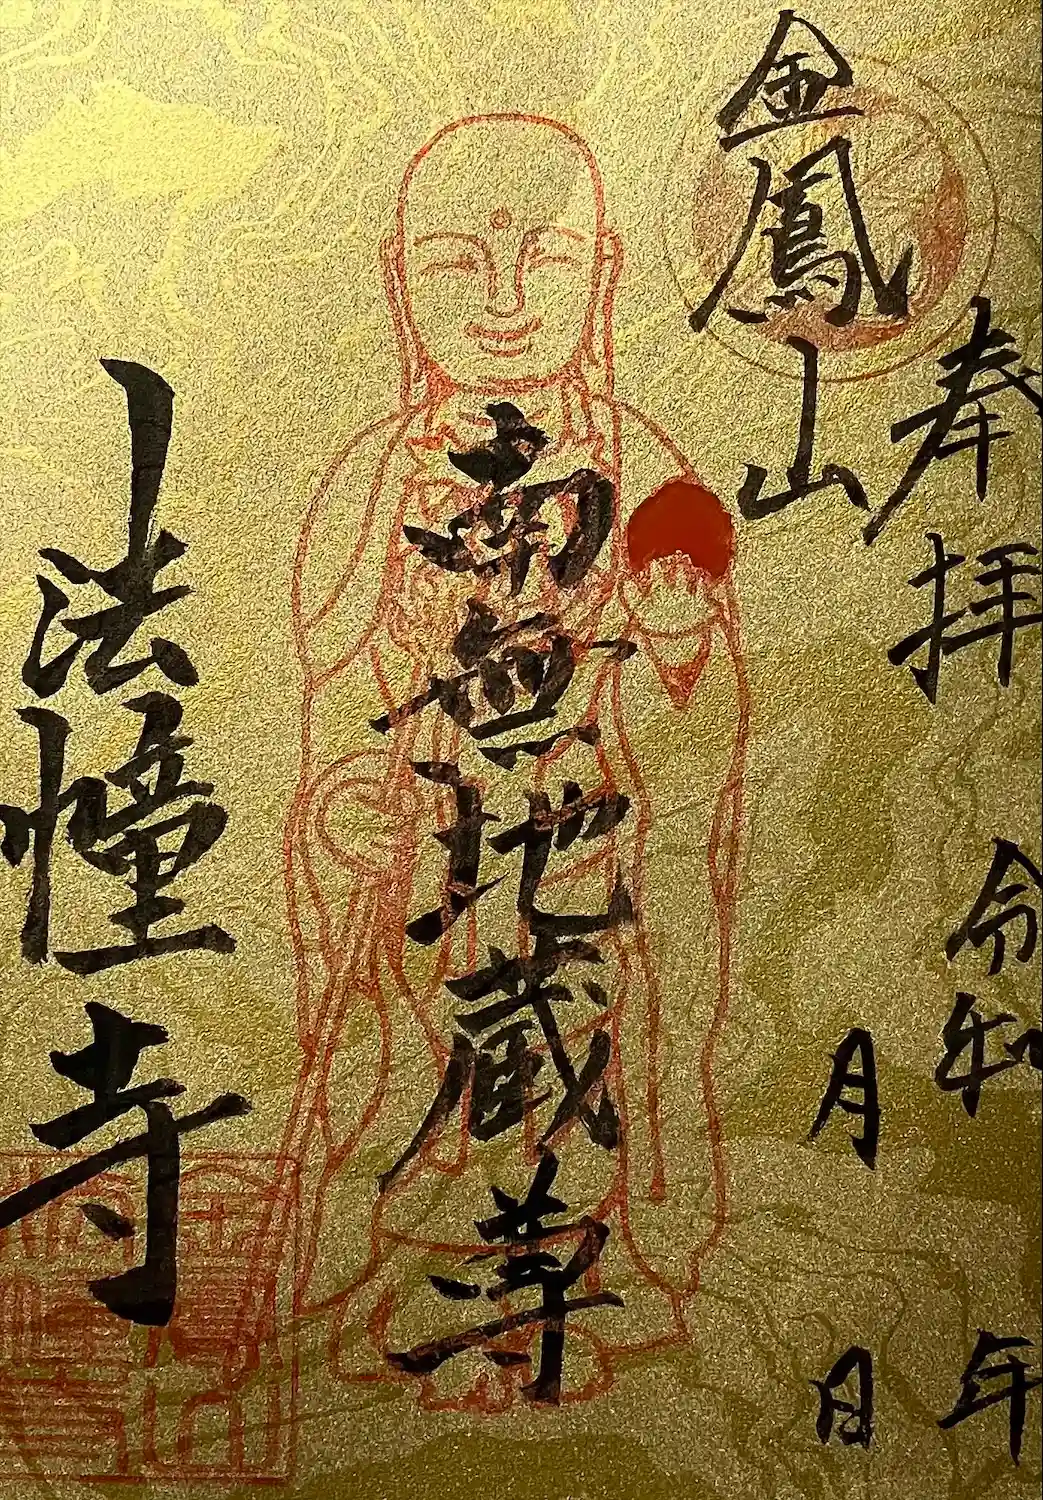 奉拝
令和　年
金鳳山
月　日
南無地蔵尊
法幢寺